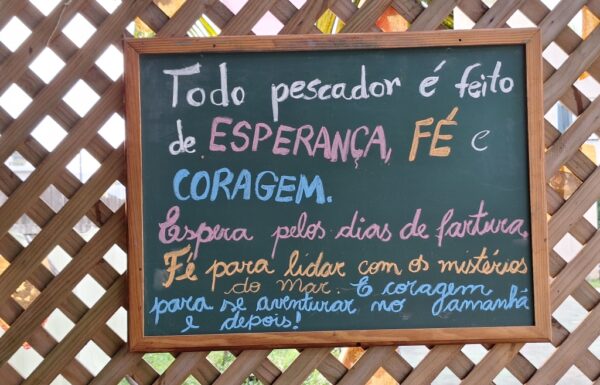 Todo pescador é feito
de ESPERANÇA, FÉ e
CORAGEM.
Espera pelos dias de fartura,
Fé para lidar com os mistérios
do mar. E coragem
para se aventurar no amanhã
e depois!